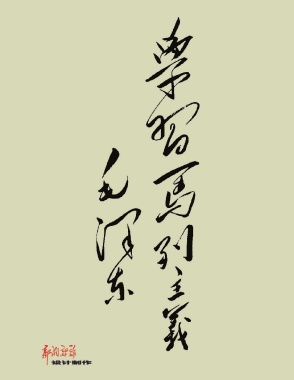 學習馬列主義
毛泽东
设计制作